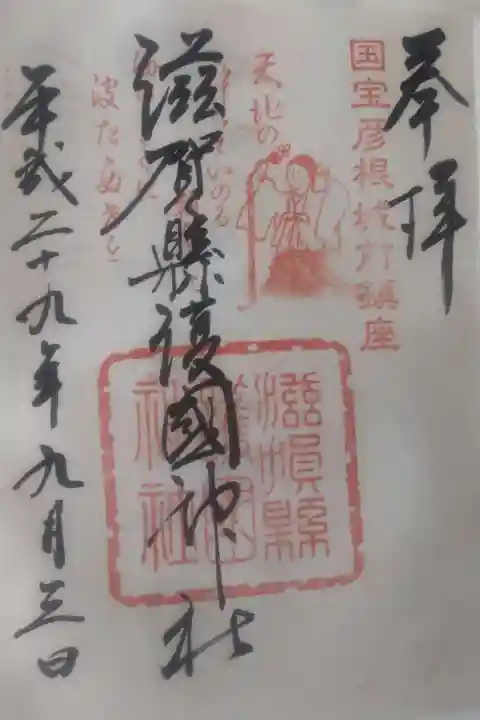 奉拝
国宝彦根城鎮座
天地の
神にぞいのる
波たたぬ世を
滋賀縣護國神社
滋賀縣
護國
神社
平成二十九年九月三日